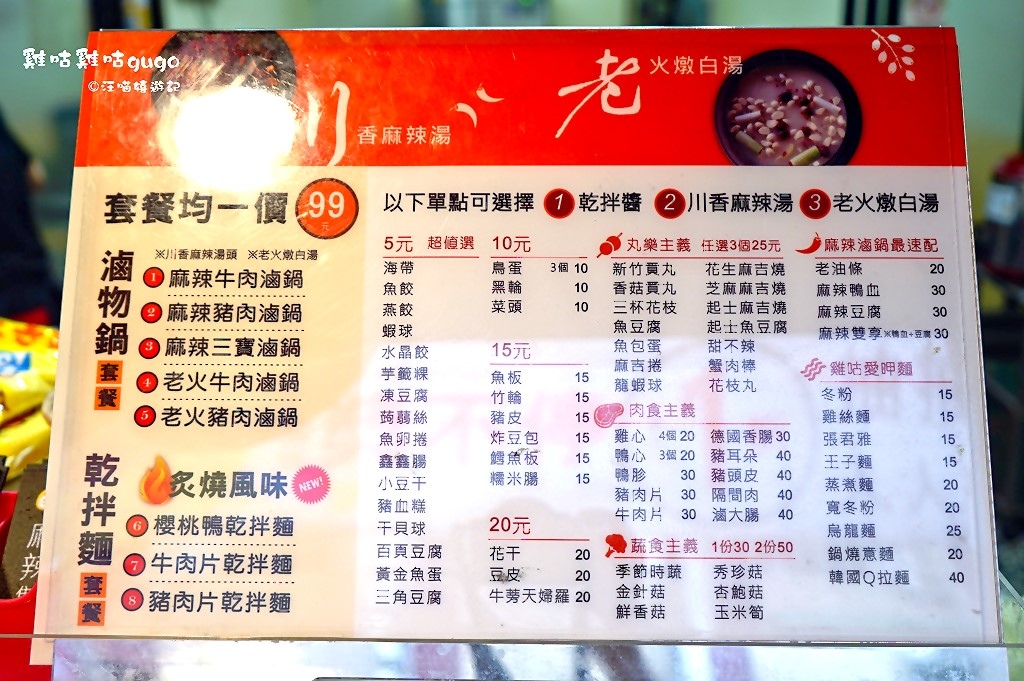 雞咕雞咕gugo
©汪喵嬉遊記
川 香麻辣湯
老 火燉白湯
套餐均一價 99元
滷物鍋 套餐
※川香麻辣湯頭 ※老火燉白湯
1 麻辣牛肉滷鍋
2 麻辣豬肉滷鍋
3 麻辣三寶滷鍋
4 老火牛肉滷鍋
5 老火豬肉滷鍋
乾拌麵 套餐
炙燒風味 NEW!
6 櫻桃鴨乾拌麵
7 牛肉片乾拌麵
8 豬肉片乾拌麵
以下單點可選擇 1 乾拌醬 2 川香麻辣湯 3 老火燉白湯
5元 超値選
海帶
魚餃
燕餃
蝦球
水晶餃
芋籤粿
凍豆腐
蒟蒻絲
魚卵捲
鑫鑫腸
小豆干
豬血糕
干貝球
百頁豆腐
黃金魚蛋
三角豆腐
10元
鳥蛋 3個 10
黑輪 10
菜頭 10
15元
魚板 15
竹輪 15
豬皮 15
炸豆包 15
鱈魚板 15
糯米腸 15
20元
花干 20
豆皮 20
牛蒡天婦羅 20
丸樂主義 任選3個25元
新竹貢丸 花生麻吉燒
香菇貢丸 芝麻麻吉燒
三杯花枝 起士麻吉燒
魚豆腐 起士魚豆腐
魚包蛋 甜不辣
麻吉捲 蟹肉棒
龍蝦球 花枝丸
肉食主義
雞心 4個 20 德國香腸 30
鴨心 3個 20 豬耳朵 40
鴨胗 30 豬頭皮 40
豬肉片 30 隔間肉 40
牛肉片 30 滷大腸 40
蔬食主義 1份30 2份50
季節時蔬 秀珍菇
金針菇 杏鮑菇
鮮香菇 玉米筍
麻辣滷鍋最速配
老油條 20
麻辣鴨血 30
麻辣豆腐 30
麻辣雙享 ※鴨血+豆腐 30
雞咕愛呷麵
冬粉 15
雞絲麵 15
張君雅 15
王子麵 15
蒸煮麵 20
寬冬粉 20
烏龍麵 25
鍋燒意麵 20
韓國Q拉麵 40
麻辣